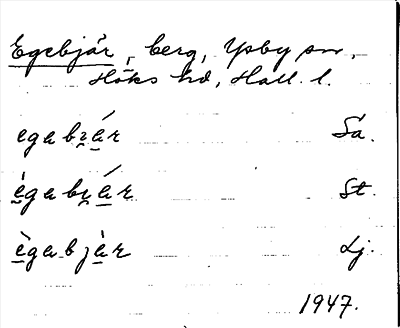 Egebjär, berg, Ysby sn,
Höks hd, Hall. l.
egabɪ̯á̱r Sá.
è̱gabɪ̯á̱r St.
è̱gabjà̱r Lj.
1947.